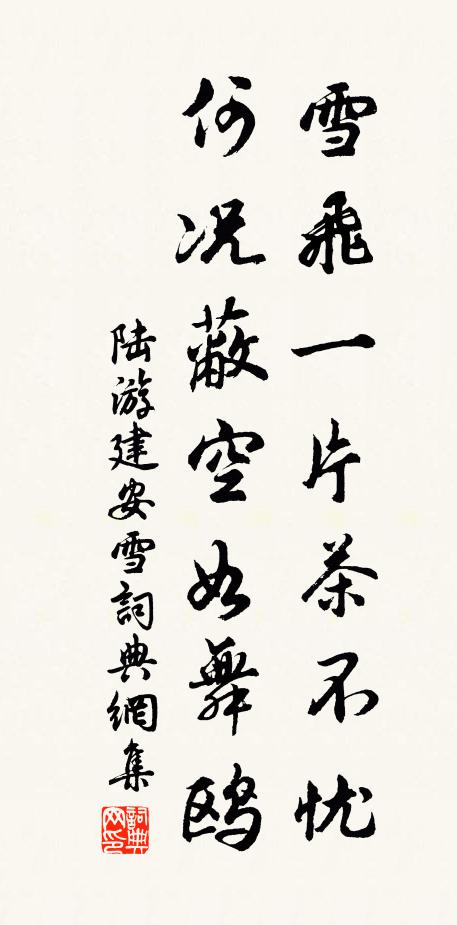 雪飛一片茶不忧
何况蔽空如舞鸥
陆游建安雪詞典網集
詞典网印